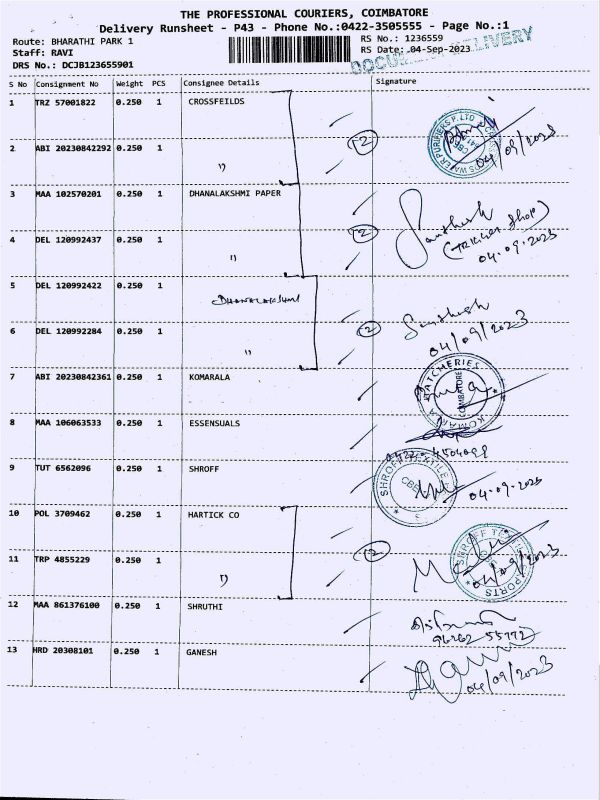 THE PROFESSIONAL COURIERS, COIMBATORE
Delivery Runsheet - P43 - Phone No.:0422-3505555 - Page No.:1
Route: BHARATHI PARK 1 RS No.: 1236559
Staff: RAVI RS Date: 04-Sep-2023
DRS No.: DCJB123655901
DOCUMENT DELIVERY
S No Consignment No Weight PCS Consignee Details Signature
1 TRZ 57001822 0.250 1 CROSSFEILDS
2 ABI 20230842292 0.250 1 ") (2) 04/09/2023
3 MAA 102570201 0.250 1 DHANALAKSHMI PAPER Santhosh
4 DEL 120992437 0.250 1 " (2) 04.09.2023
5 DEL 120992422 0.250 1 DHANALAKSHMI Santhosh
6 DEL 120992284 0.250 1 " (2) 04/09/2023
7 ABI 20230842361 0.250 1 KOMARALA KOMARALA HATCHERIES COIMBATORE
8 MAA 106063533 0.250 1 ESSENSUALS
9 TUT 6562096 0.250 1 SHROFF 04.09.2023
10 POL 3709462 0.250 1 HARTICK CO
11 TRP 4855229 0.250 1 ") (2) 04/09/2023
12 MAA 861376100 0.250 1 SHRUTHI
13 HRD 20308101 0.250 1 GANESH 04/09/2023